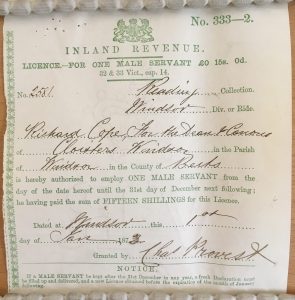 No. 333—2.
INLAND REVENUE.
LICENCE.—FOR ONE MALE SERVANT £0 15s. 0d.
32 & 33 Vict., cap. 14.
No. 2581. Reading Collection.
Windsor Div. or Ride.
Richard Cope, for the Dean & Canons
of Cloisters Windsor in the Parish
of Windsor in the County of Berks
is hereby authorized to employ ONE MALE SERVANT from the
day of the date hereof until the 31st day of December next following;
he having paid the sum of FIFTEEN SHILLINGS for this Licence.
Dated at Windsor this 1st
day of Jan 187
Granted by Chas
NOTICE.
If a MALE SERVANT be kept after the 31st December in any year, a fresh Declaration must
be filled up and delivered, and a new Licence obtained before the expiration of the month of January